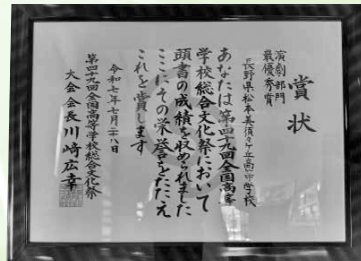 賞状
演劇部門
最優秀賞
長野県松本美須々ヶ丘高等学校
あなたは第四十九回全国高等
学校総合文化祭において
頭書の成績を収められました
ここにその栄誉をたたえ
これを賞します
令和七年七月二十八日
第四十九回全国高等学校総合文化祭
大会会長川﨑広幸